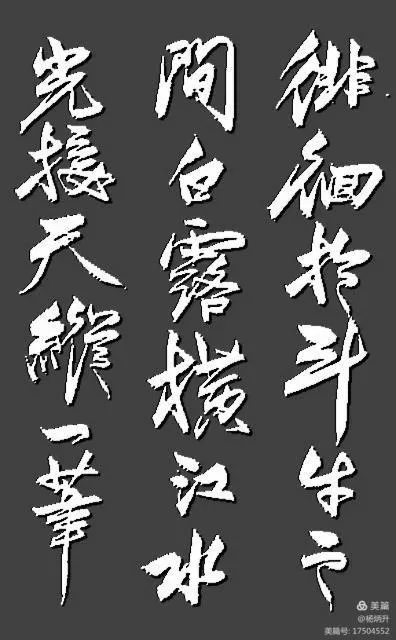 徘徊於斗牛之
間白露橫江水
光接天縱一葦
美篇
@杨炳升
美篇号: 17504552